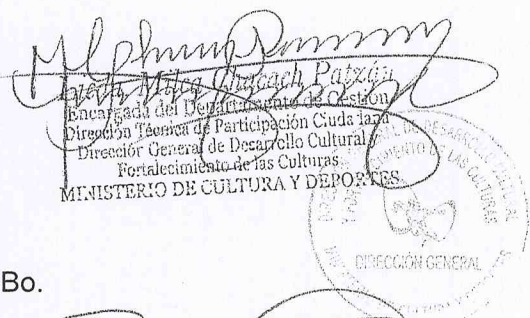 Milca Chacach Patzán
Encargada del Departamento de Gestión
Dirección Técnica de Participación Ciudadana
Dirección General de Desarrollo Cultural y
Fortalecimiento de las Culturas
MINISTERIO DE CULTURA Y DEPORTES
DE DESARROLLO CULTURAL
DE LAS CULTURAS
DIRECCIÓN GENERAL
Bo.